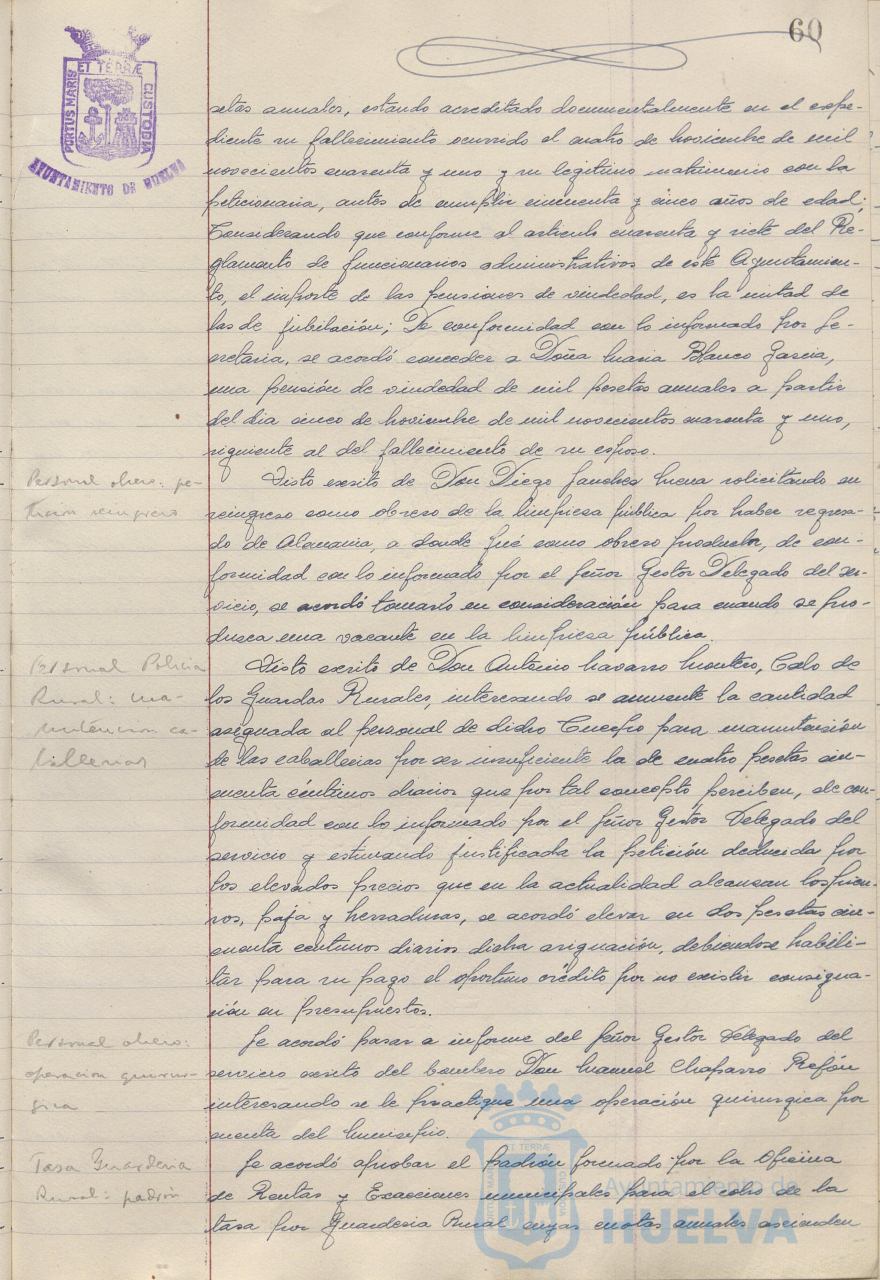 60
PORTUS MARIS ET TERRÆ CUSTODIA
AYUNTAMIENTO DE HUELVA
setas anuales, estando acreditado documentalmente en el expe-
diente su fallecimiento ocurrido el cuatro de Noviembre de mil
novecientos cuarenta y uno y su legitimo matrimonio con la
peticionaria, antes de cumplir cincuenta y cinco años de edad;
Considerando que conforme al articulo cuarenta y siete del Re-
glamento de funcionarios administrativos de este Ayuntamien-
to, el importe de las pensiones de viudedad, es la mitad de
las de jubilación; De conformidad con lo informado por Se-
cretaria, se acordó conceder a Doña Maria Blanco Garcia,
una pensión de viudedad de mil pesetas anuales a partir
del dia cinco de Noviembre de mil novecientos cuarenta y uno,
siguiente al del fallecimiento de su esposo.
Personal obrero: pe-
tición reingreso
Visto escrito de Don Diego Sanchez Mena solicitando su
reingreso como obrero de la limpieza pública por haber regresa-
do de Alemania, a donde fué como obrero productor, de con-
formidad con lo informado por el Señor Gestor Delegado del ser-
vicio, se acordó tomarlo en consideración para cuando se pro-
duzca una vacante en la limpieza pública.
Personal Policia
Rural: ma-
nutencion ca-
ballerias
Visto escrito de Don Antonio Navarro Montero, Cabo de
los Guardas Rurales, interesando se aumente la cantidad
asignada al personal de dicho Cuerpo para manutensión
de las caballerias por ser insuficiente la de cuatro pesetas cin-
cuenta céntimos diarios que por tal concepto perciben, de con-
formidad con lo informado por el Señor Gestor Delegado del
servicio y estimando justificada la petición deducida por
los elevados precios que en la actualidad alcanzan los pien-
sos, paja y herraduras, se acordó elevar en dos pesetas cin-
cuenta centimos diarios dicha asignación, debiendose habili-
tar para su pago el oportuno crédito por no existir consigna-
ción en presupuestos.
Personal obrero:
operacion quirur-
gica
Se acordó pasar a informe del Señor Gestor Delegado del
servicio escrito del bombero Don Manuel Chaparro Refón
interesando se le practique una operación quirurgica por
cuenta del Municipio.
Tasa Guarderia
Rural: padrón
Se acordó aprobar el padrón formado por la Oficina
de Rentas y Exacciones municipales para el cobro de la
tasa por Guarderia Rural cuyas cuotas anuales ascienden
Ayuntamiento de
HUELVA